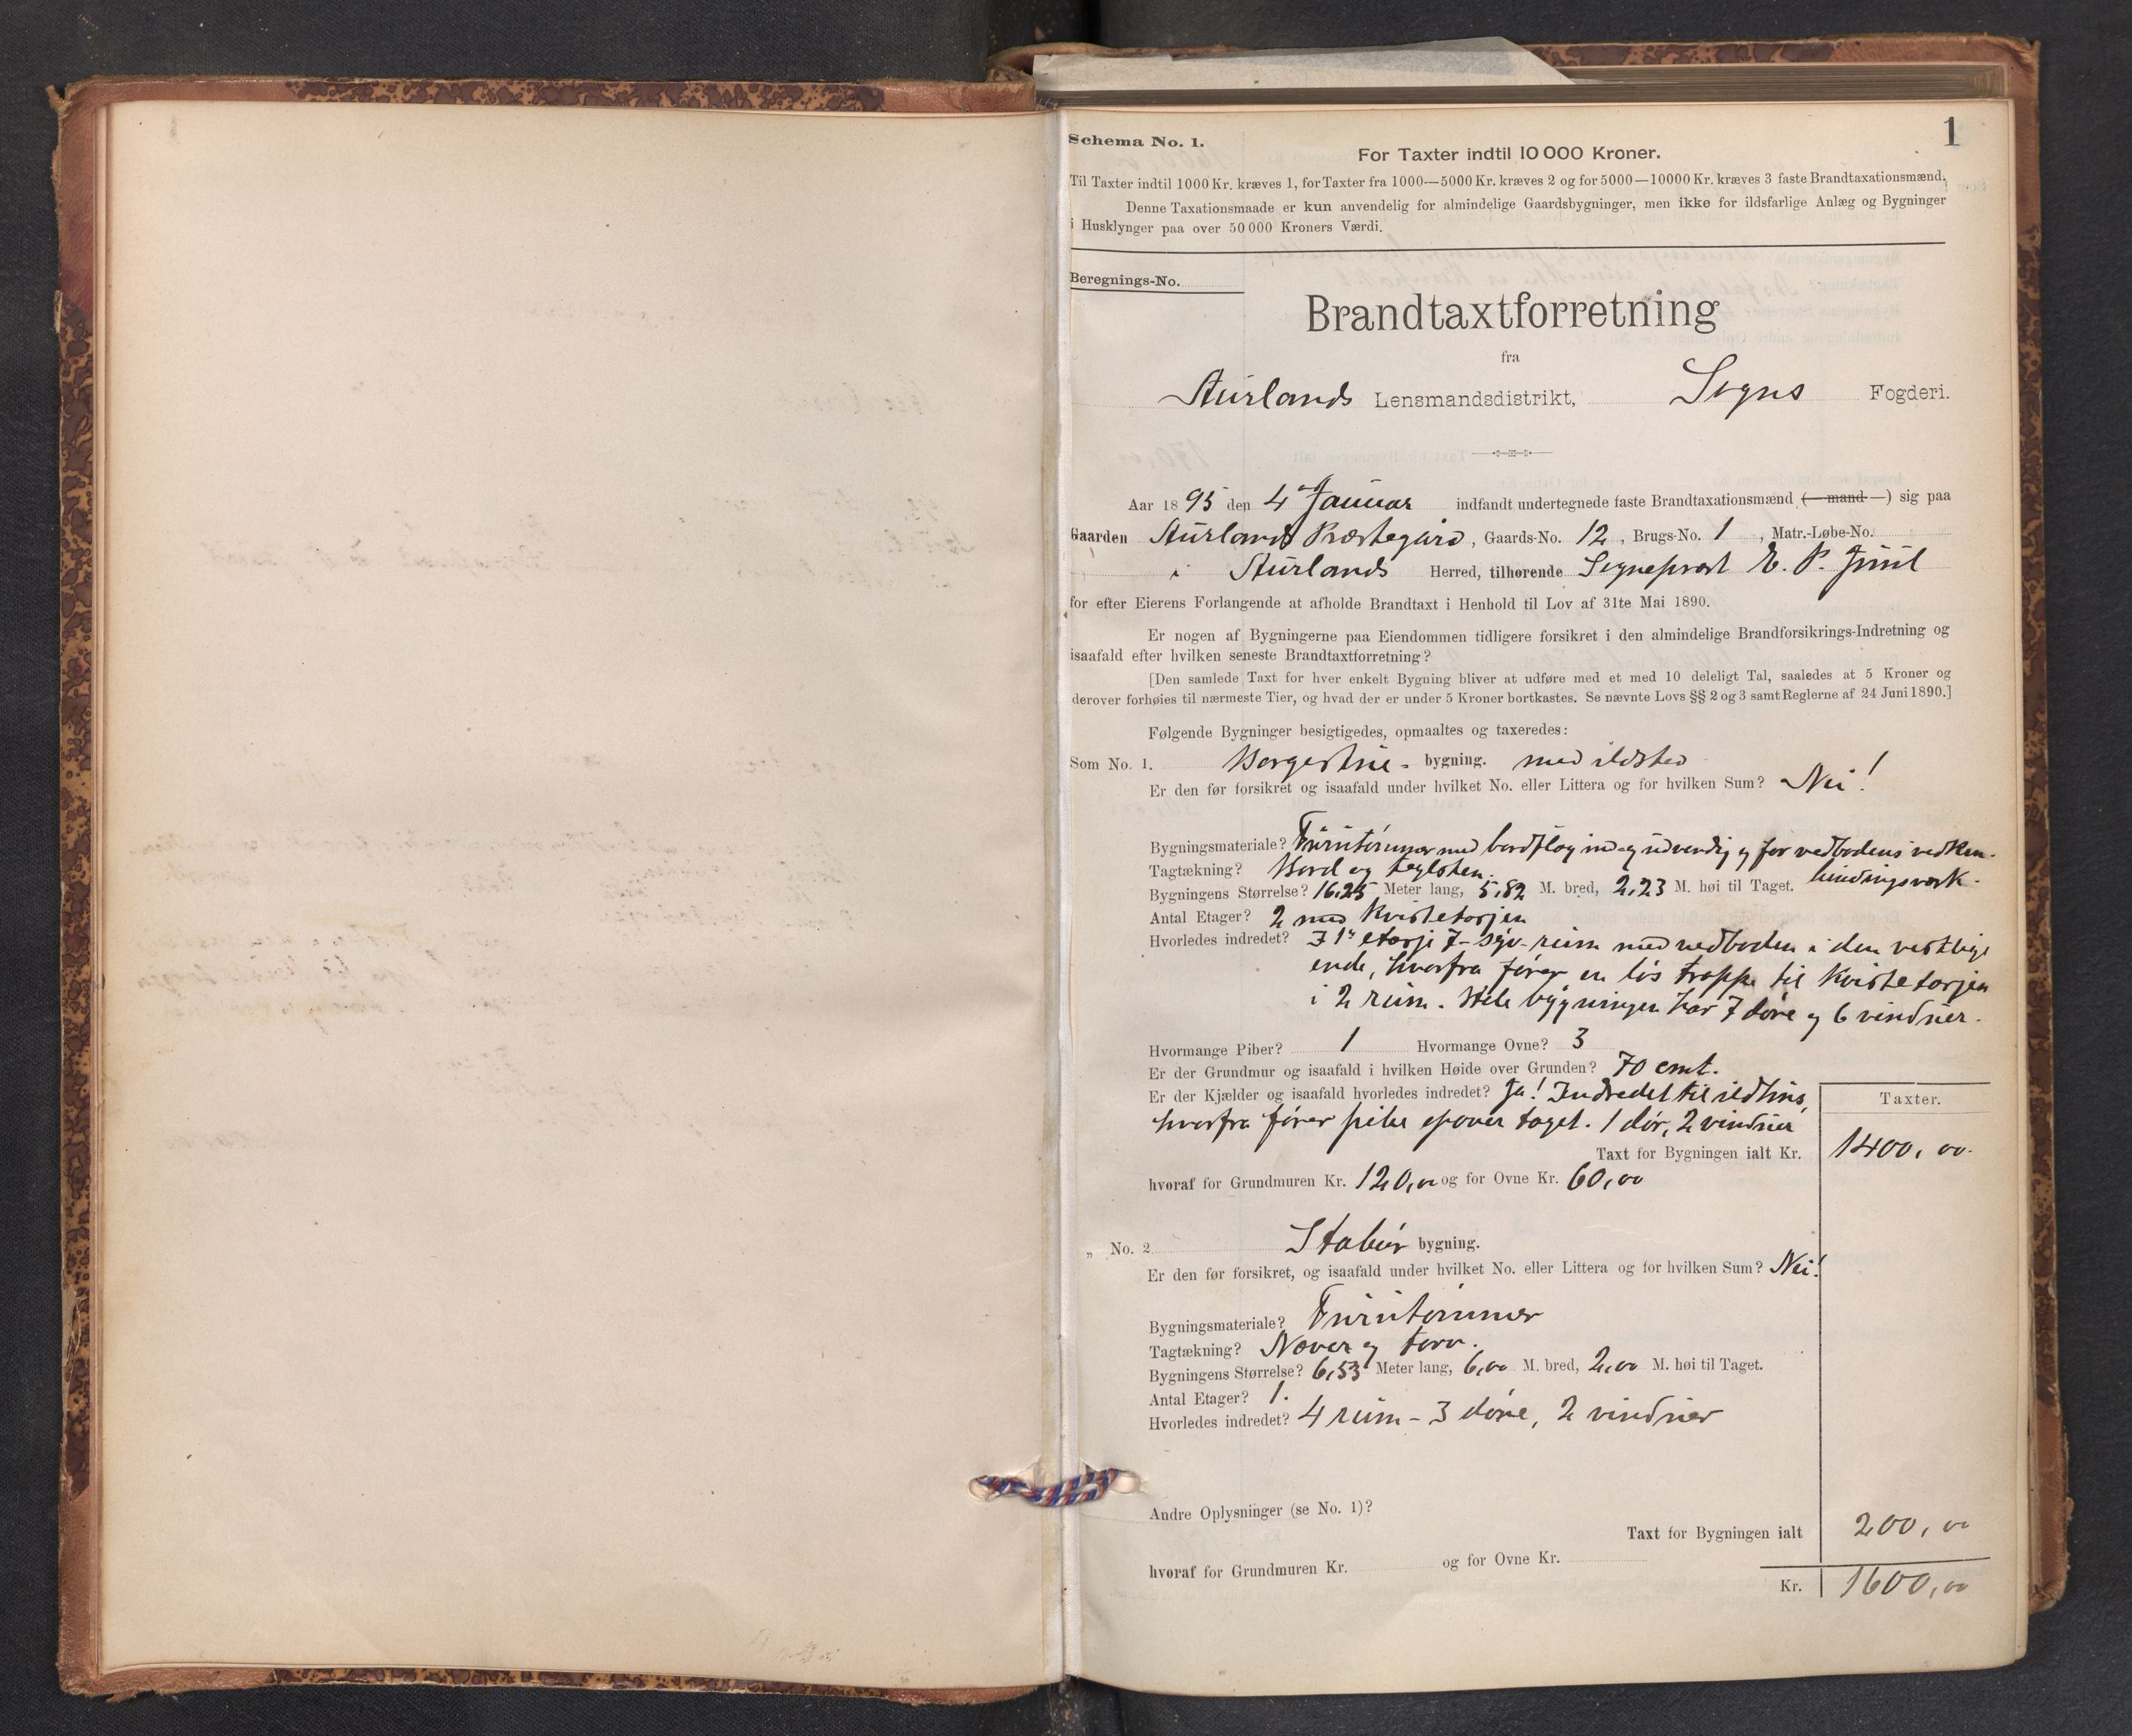 1
Schema No. 1.
For Taxter indtil 10 000 Kroner.
Til Taxter indtil 1000 Kr. kræves 1, for Taxter fra 1000—5000 Kr. kræves 2 og for 5000—10000 Kr. kræves 3 faste Brandtaxationsmænd.
Denne Taxationsmaade er kun anvendelig for almindelige Gaardsbygninger, men ikke for ildsfarlige Anlæg og Bygninger
i Husklynger paa over 50 000 Kroners Værdi.
Beregnings-No.
Brandtaxtforretning
fra
Aurlands Lensmandsdistrikt, Sogns Fogderi.
Aar 1895 den 4 Januar indfandt undertegnede faste Brandtaxationsmænd (—mand—) sig paa
Gaarden Aurlands Præstegård, Gaards-No. 12, Brugs-No. 1, Matr.-Løbe-No.
i Aurlands Herred, tilhørende Sogneprest E. P. Juul
for efter Eierens Forlangende at afholde Brandtaxt i Henhold til Lov af 31te Mai 1890.
Er nogen af Bygningerne paa Eiendommen tidligere forsikret i den almindelige Brandforsikrings-Indretning og
isaafald efter hvilken seneste Brandtaxtforretning?
[Den samlede Taxt for hver enkelt Bygning bliver at udføre med et med 10 deleligt Tal, saaledes at 5 Kroner og
derover forhøies til nærmeste Tier, og hvad der er under 5 Kroner bortkastes. Se nævnte Lovs §§ 2 og 3 samt Reglerne af 24 Juni 1890.]
Følgende Bygninger besigtigedes, opmaaltes og taxeredes:
Som No. 1. Borgestue- bygning. med ildsted
Er den før forsikret og isaafald under hvilket No. eller Littera og for hvilken Sum? Nei!
Bygningsmateriale? Furutømmer med bordklæg ind- og udvendig og for vedbodens vedkom.
bindingsværk.
Tagtækning? Bord og teglsten.
Bygningens Størrelse? 16,25 Meter lang, 5,82 M. bred, 2,23 M. høi til Taget.
Antal Etager? 2 med Kvistetasjen
Hvorledes indredet? I 1ste etasje 7- syv- rum med vedboden i den vestlige
ende, hvorfra fører en løs trappe til Kvistetasjen
i 2 rum. Hele bygningen har 7 døre og 6 vinduer.
Hvormange Piber? 1 Hvormange Ovne? 3
Er der Grundmur og isaafald i hvilken Høide over Grunden? 70 cmt.
Er der Kjælder og isaafald hvorledes indredet? Ja! Indredet til ildhus,
hvorfra fører pibe opover taget. 1 dør, 2 vinduer
Taxter.
Taxt for Bygningen ialt Kr. 1400,00.
hvoraf for Grundmuren Kr. 120,00 og for Ovne Kr. 60,00
„ No. 2 Stabur bygning.
Er den før forsikret, og isaafald under hvilket No. eller Littera og for hvilken Sum? Nei!
Bygningsmateriale? Furutømmer
Tagtækning? Næver og torv.
Bygningens Størrelse? 6,53 Meter lang, 6,00 M. bred, 2,00 M. høi til Taget.
Antal Etager? 1.
Hvorledes indredet? 4 rum - 3 døre, 2 vinduer
Andre Oplysninger (se No. 1)?
Taxt for Bygningen ialt 200,00
hvoraf for Grundmuren Kr. og for Ovne Kr.
Kr. 1600,00